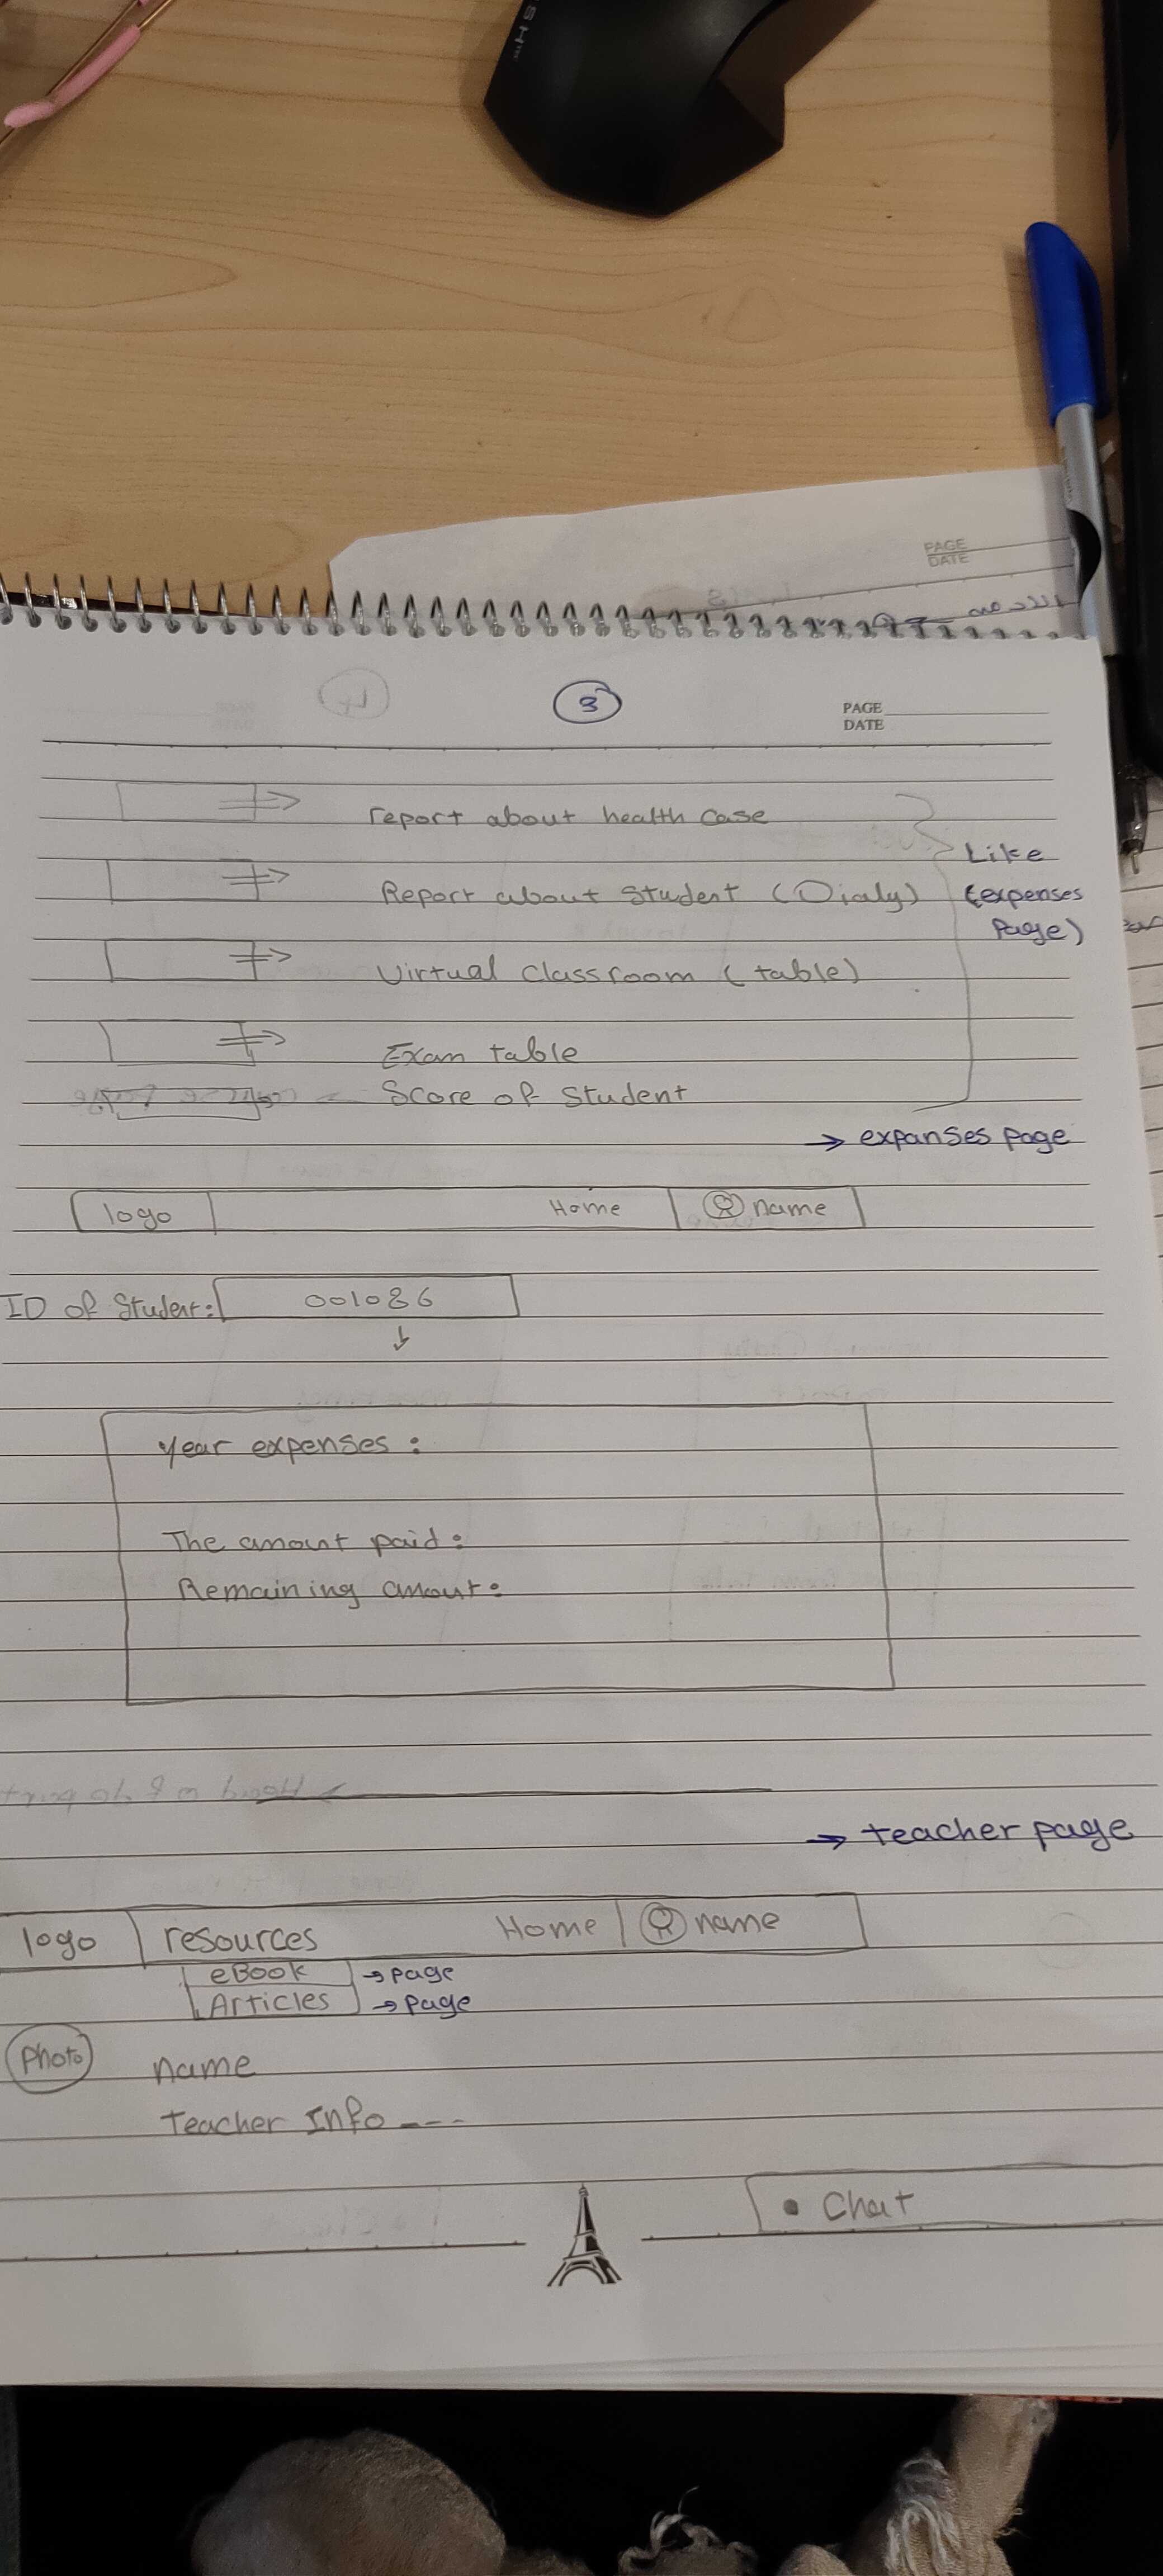 3
PAGE
DATE
report about health case
Like
Report about Student (Dialy)
(expenses
Page)
Virtual Classroom (table)
Exam table
Score of Student
→ expanses page
logo Home name
ID of Student: 001086
year expenses :
The amount paid:
Remaining amout:
→ teacher page
logo resources Home name
eBook → page
Articles → page
Photo name
teacher Info ---
• Chat
PAGE
DATE